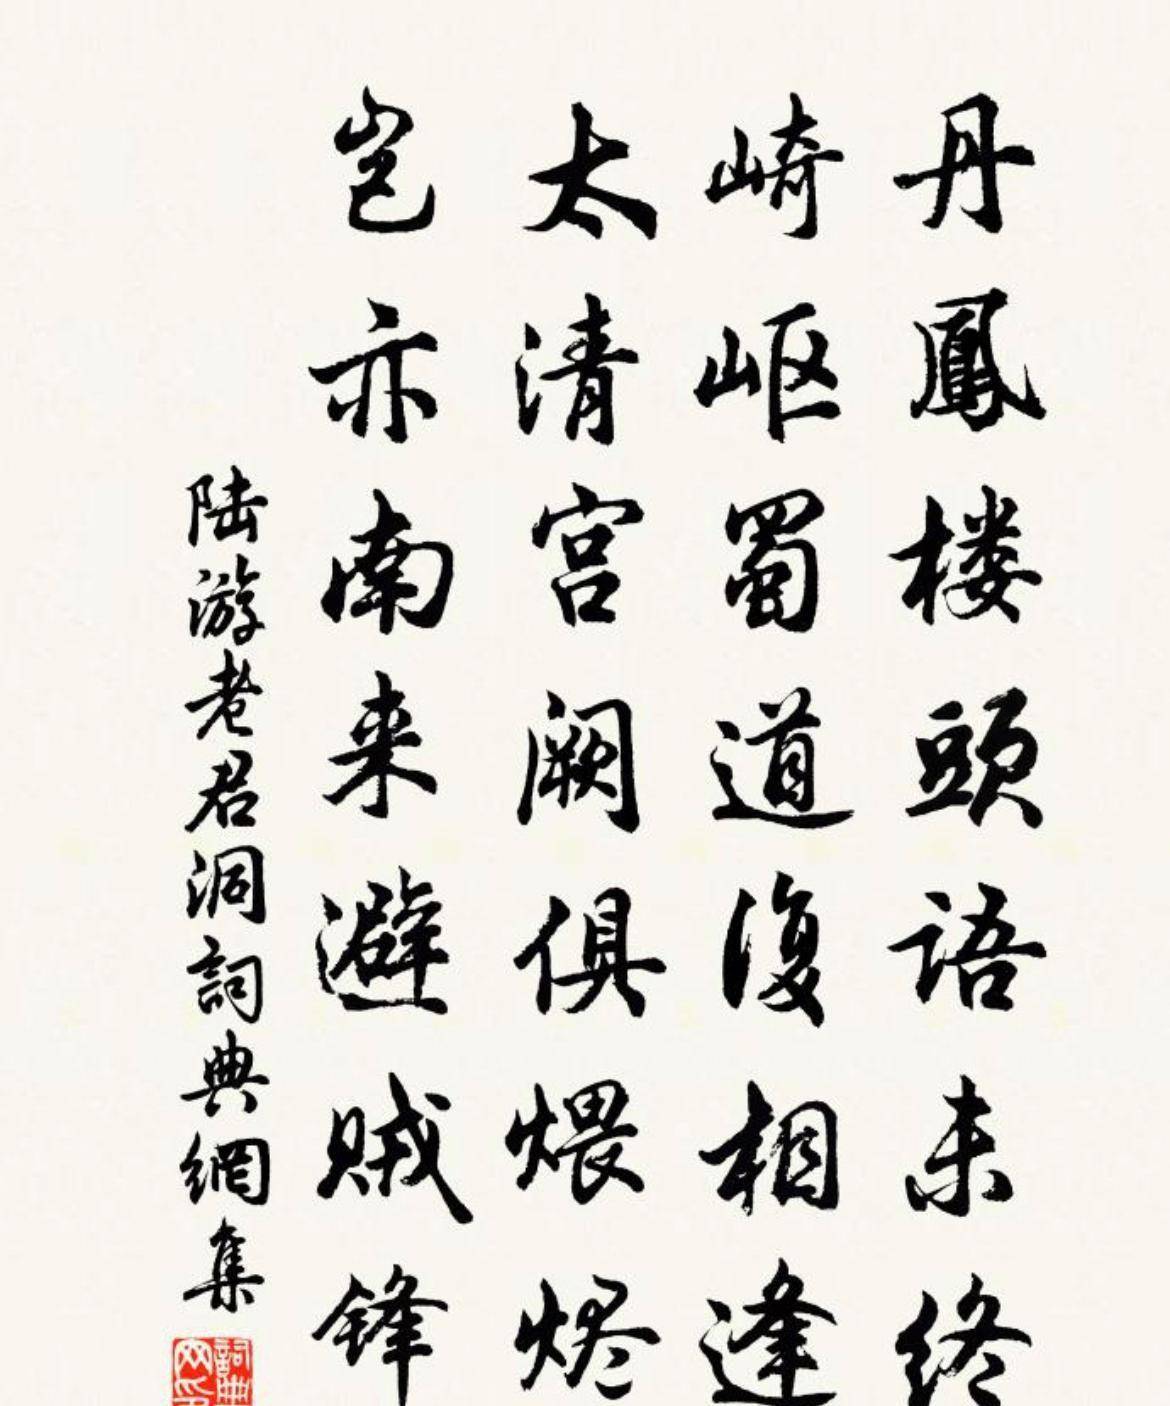 丹鳳楼頭語未终
崎岖蜀道復相逢
太清宫阙俱煨烬
岂亦南来避賊锋
陆游老君洞詞典網集
詞典
网